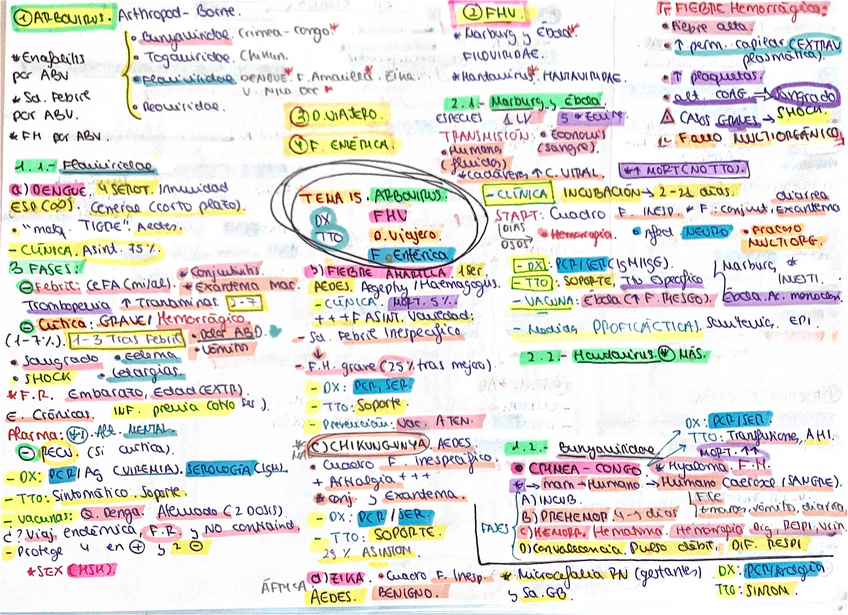 ① ARBOVIRUS. Arthropod-Borne.
* Encefalitis por ABV
* Sd. Febril por ABV.
* FH por ABV.
• Bunyaviridae Crimea-congo.*
• Togaviridae. Chikun.
• Flaviviridae DENGUE* F. Amarilla. Zika. V. Nilo Occ
• Reoviridae.
③ D. VIAJERO.
④ F. ENTÉRICA.
② FHV.
* Marburg y Ébola*
FILOVIRIDAE.
* Hantavirus* HANTAVIRIDAE.
2.1- Marburg y Ébola
ESPECIES 1 LV 5 *
TRANSMISIÓN.
• Humano (fluidos)
(sangre).
* cadáver, ↑ C. VIRAL.
FIEBRE Hemorrágica:
• Fiebre alta
• ↑ perm. capilar (EXTRAV plasmática).
• ↑ plaquetas.
• alt. COAG → Sangrado
⚠ CASOS GRAVES → SHOCK.
Fallo MULTIORGÁNICO
*↑ MORT (NO TTO).
- CLÍNICA INCUBACIÓN → 2-21 días.
START: Cuadro F. INESP. * F: conjunt, Exantema
diarrea
• Hemorragia. • Afect NEURO • Fracaso MULTIORG.
- DX: PCR/SER (IgM/IgG).
- TTO: SOPORTE, Tto Específico
Marburg, * INESTI.
Ébola. Ac. monoclon.
- VACUNA: Ébola (↑ F. RIESGO).
- Medidas PROFILÁCTICAS. EPI.
2.2.- Hantavirus. * MÁS.
TEMA 15. ARBOVIRUS.
DX FHV
TTO D. Viajero.
F. Entérica
1.1.- Flaviviridae
a) DENGUE. 4 SEROT. Inmunidad
ESP (∞). General (corto plazo).
• "mosq. TIGRE" Aedes.
- CLÍNICA. Asint. 75%.
3 FASES:
Febril: CEFA (mialg). * Conjuntivitis. * Exantema mac.
Trombopenia ↑ Transaminas. 2-7
Crítica: GRAVE / Hemorrágica
(1-7%). 1-3 Tras Febril • Dolor ABD. • Vómitos
• Sangrado • edema
• SHOCK • Letargias.
* F.R. Embarazo, Edad (EXTR).
E. Crónicas. INF. previa (otro ser).
Plasma: Alt. MENTAL.
RECU (Si crítica).
- DX: PCR/Ag (VIREMIA). SEROLOGÍA (IgM).
- TTO: Sintomático. Soporte.
- Vacunas: Q. Denga. Atenuada (2 dosis).
¿? Viaj. endémica, F.R. y NO contraind.
- Protege 4 en ⊕ y 2 ⊖
* SEX (HSH).
b) FIEBRE AMARILLA. 1 Ser.
AEDES. Aegephy / Haemagogus.
- CLÍNICA: MORT. 5%.
+++F ASINT. Variedad:
- Sd. Febril Inespecífico
↓
- F.H. grave (25% tras mejora)
- DX: PCR, SER.
- TTO: Soporte.
- Prevención: Vac. ATEN.
c) CHIKUNGUNYA. AEDES.
• Cuadro F. inespecífico.
+ Artralgia +++
* conj. y Exantema.
- DX: PCR / SER.
- TTO: SOPORTE.
25% ASINTOM
d) ZIKA. • Cuadro F. Inesp.
AEDES. BENIGNO.
* Microcefalia RN (gestantes)
y Sd. GB.
DX: PCR/
TTO: SINTOM.
1.2.- Bunyaviridae
DX: PCR/SER.
TTO: Tranfusione, AHI.
MORT. ↑↑
• CRIMEA-CONGO * Hyaloma. F.H.
* → mam → Humano → Humano (SANGRE).
FASES
A) INCUB.
B) PREHEMOR. 4-5 días
vómito, diarrea
C) HEMORR. Hematoma. Hemorragia Dig, RESPI, Urin.
D) Convalecencia. Pulso débil, DIF. RESPI